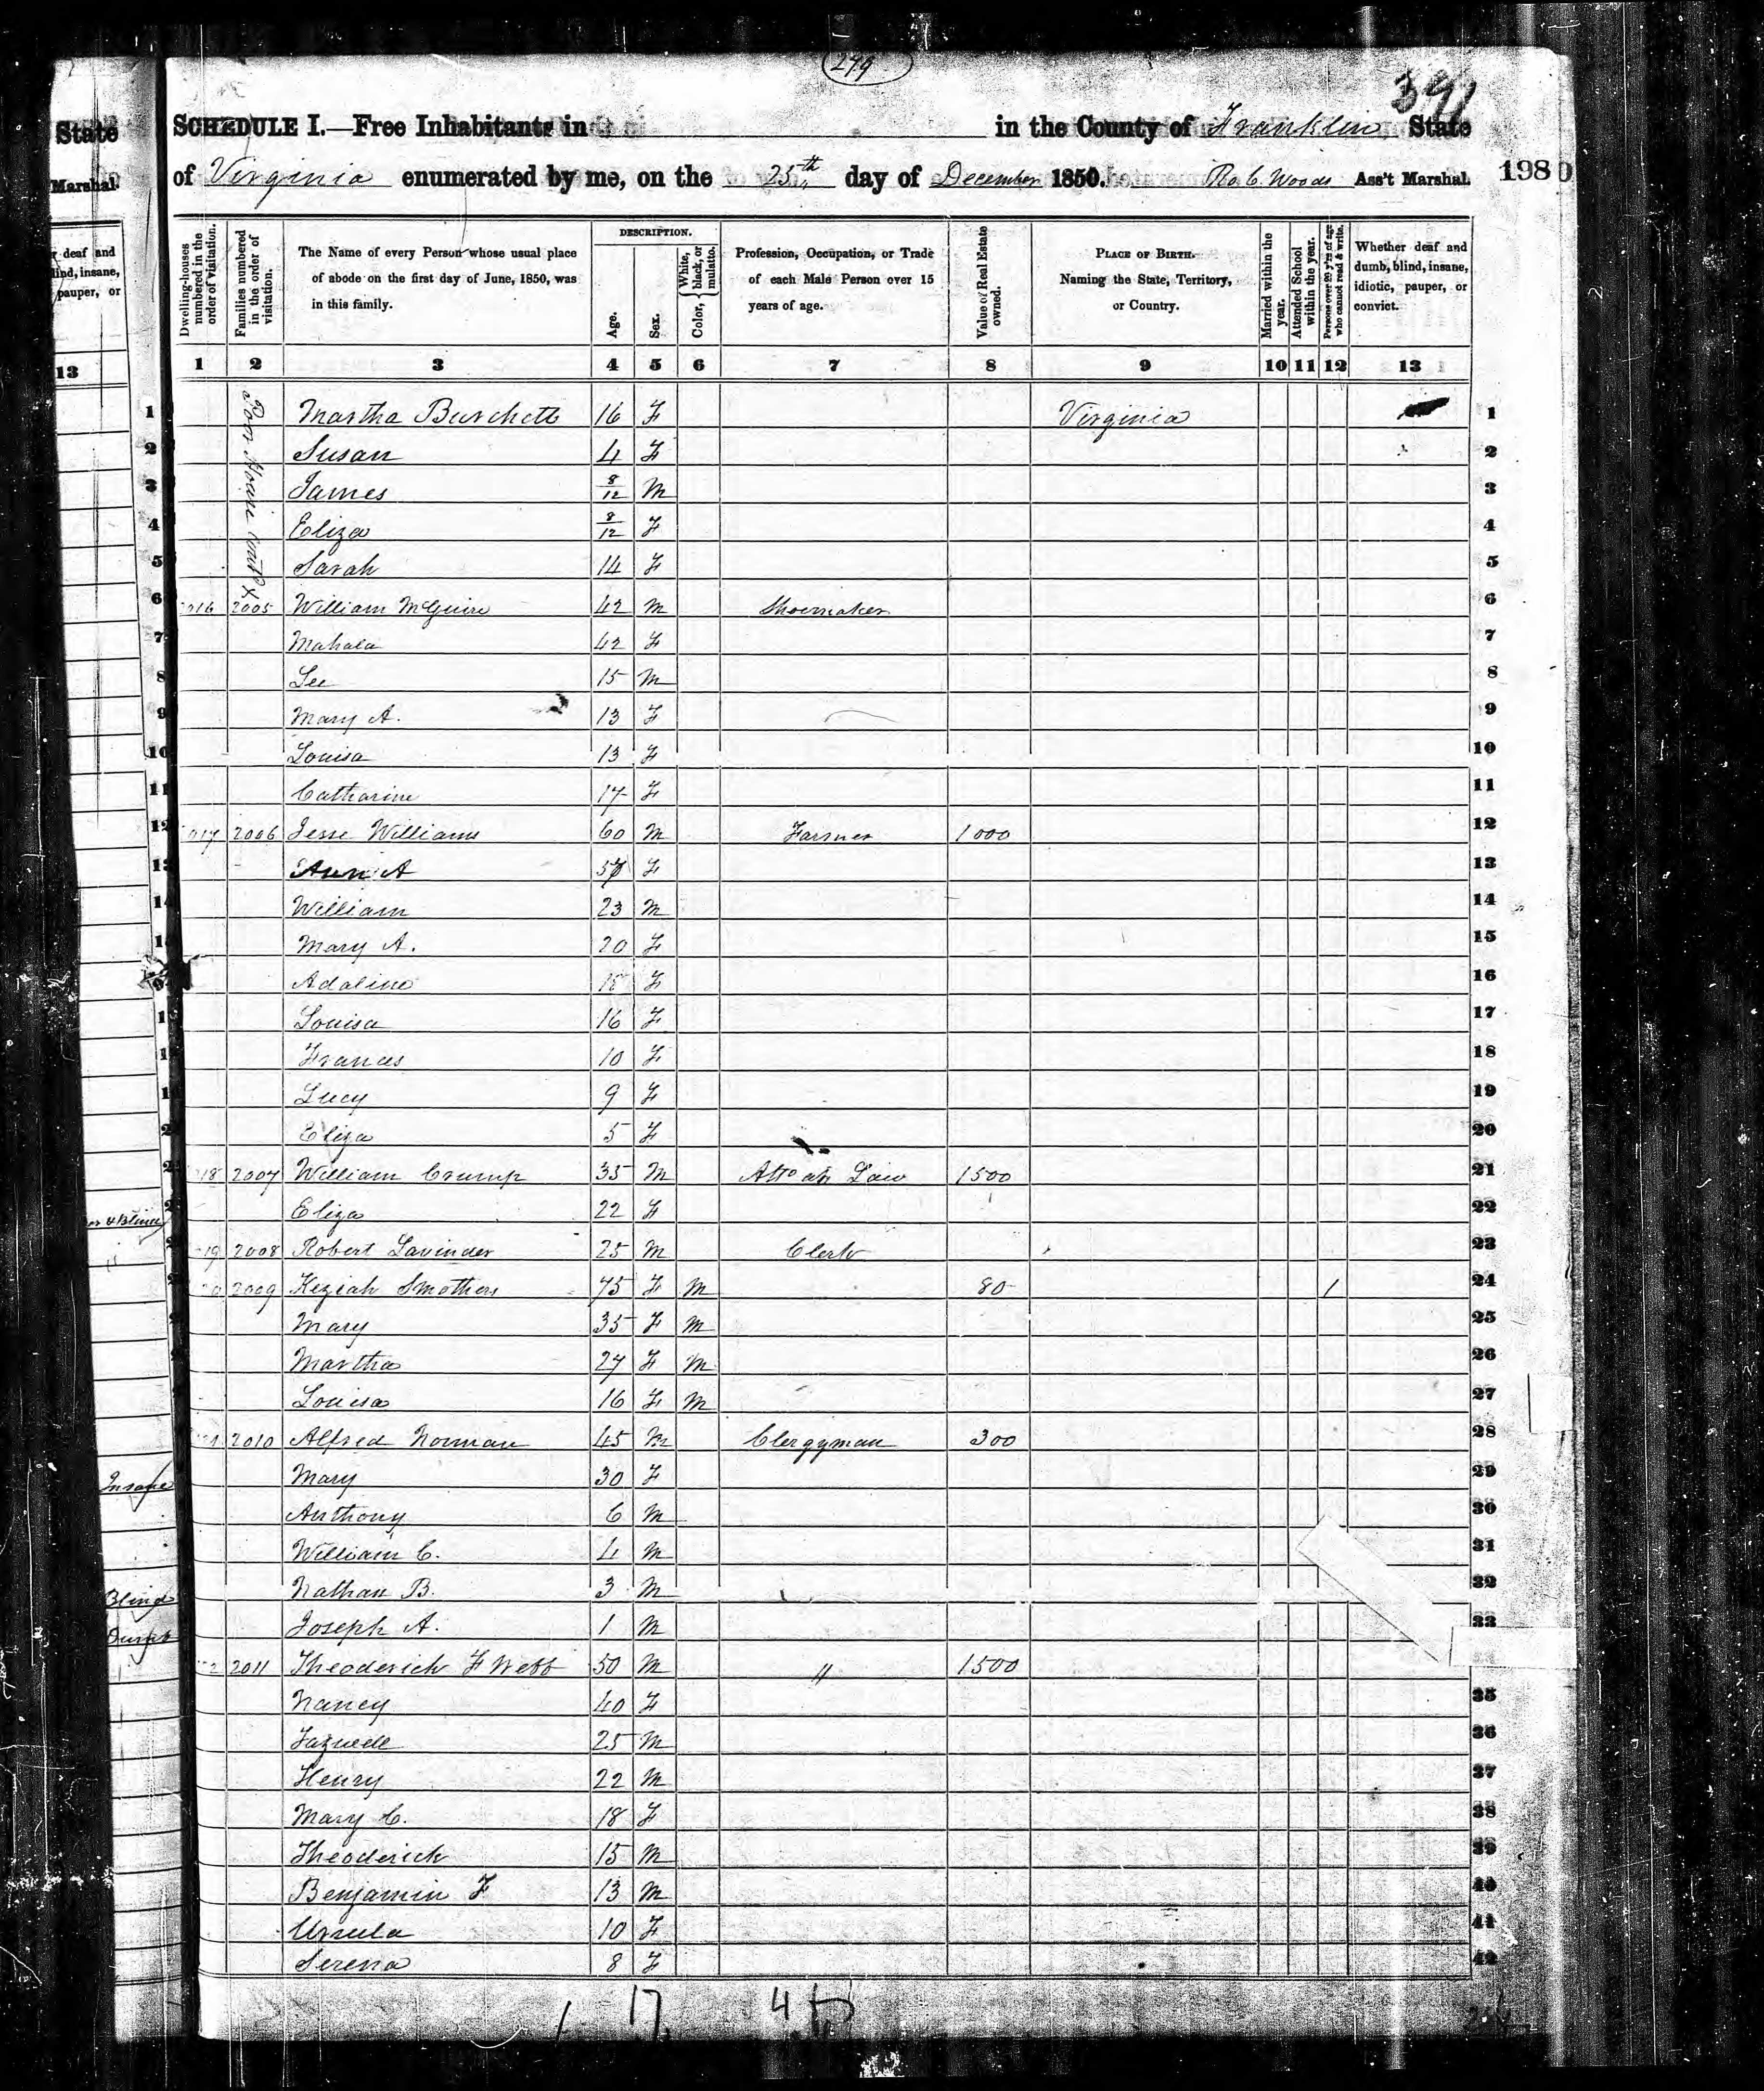 279
391
State SCHEDULE I.—Free Inhabitants in in the County of Franklin State
Marshal. of Virginia enumerated by me, on the 25th day of December 1850. Ro. C. Woods Ass't Marshal. 198
deaf and
lind, insane,
pauper, or
13
Dwelling-houses numbered in the order of visitation.
Families numbered in the order of visitation.
The Name of every Person whose usual place of abode on the first day of June, 1850, was in this family.
DESCRIPTION.
Age.
Sex.
Color, { White, black, or mulatto.
Profession, Occupation, or Trade of each Male Person over 15 years of age.
Value of Real Estate owned.
PLACE OF BIRTH. Naming the State, Territory, or Country.
Married within the year.
Attended School within the year.
Persons over 20 y'rs of age who cannot read & write.
Whether deaf and dumb, blind, insane, idiotic, pauper, or convict.
1 2 3 4 5 6 7 8 9 10 11 12 13
Poor House Cont'd
1 Martha Burchett 16 F Virginia 1
2 Susan 4 F 2
3 James 8/12 M 3
4 Eliza 8/12 F 4
5 Sarah 14 F 5
6 2016 2005 William McGuire 42 M Shoemaker 6
7 Mahala 42 F 7
8 Lee 15 M 8
9 Mary A. 13 F 9
10 Louisa 13 F 10
11 Catharine 17 F 11
12 017 2006 Jesse Williams 60 M Farmer 1000 12
13 Ann A F 13
14 William 23 M 14
15 Mary A. 20 F 15
Adaline 18 F 16
Louisa 16 F 17
Frances 10 F 18
Lucy 9 F 19
Eliza 5 F 20
18 2007 William Crump 35 M Atto at Law 1500 21
Eliza 22 F 22
19 2008 Robert Lavinder 25 M Clerk 23
20 2009 Keziah Smothers 75 F M 80 1 24
Mary 35 F M 25
Martha 27 F M 26
Louisa 16 F M 27
2010 Alfred Norman 45 M Clergyman 300 28
Insane Mary 30 F 29
Anthony 6 M 30
William C. 4 M 31
Blind Nathan B. 3 M 32
Joseph A. 1 M 33
2 2011 Theoderick F Webb 50 M " 1500
Nancy 40 F 35
Tazwell 25 M 36
Henry 22 M 37
Mary C. 18 F 38
Theoderick 15 M 39
Benjamin F 13 M 40
Ursula 10 F 41
Serena 8 F 42
17